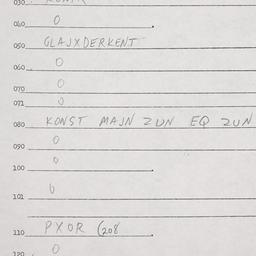 030
040 0
050 GLAJXDERKENT
060 0
070 0
071 0
080 KONST MAJN ZUN EQ ZUN
090 0
100 0
101 0
110 PXOR (208
120 0